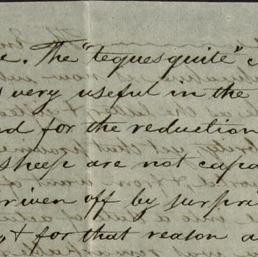 e. The "tequesquite"
very useful in the
for the reduction
sheep are not capa
riven off by surpri
& for that reason a